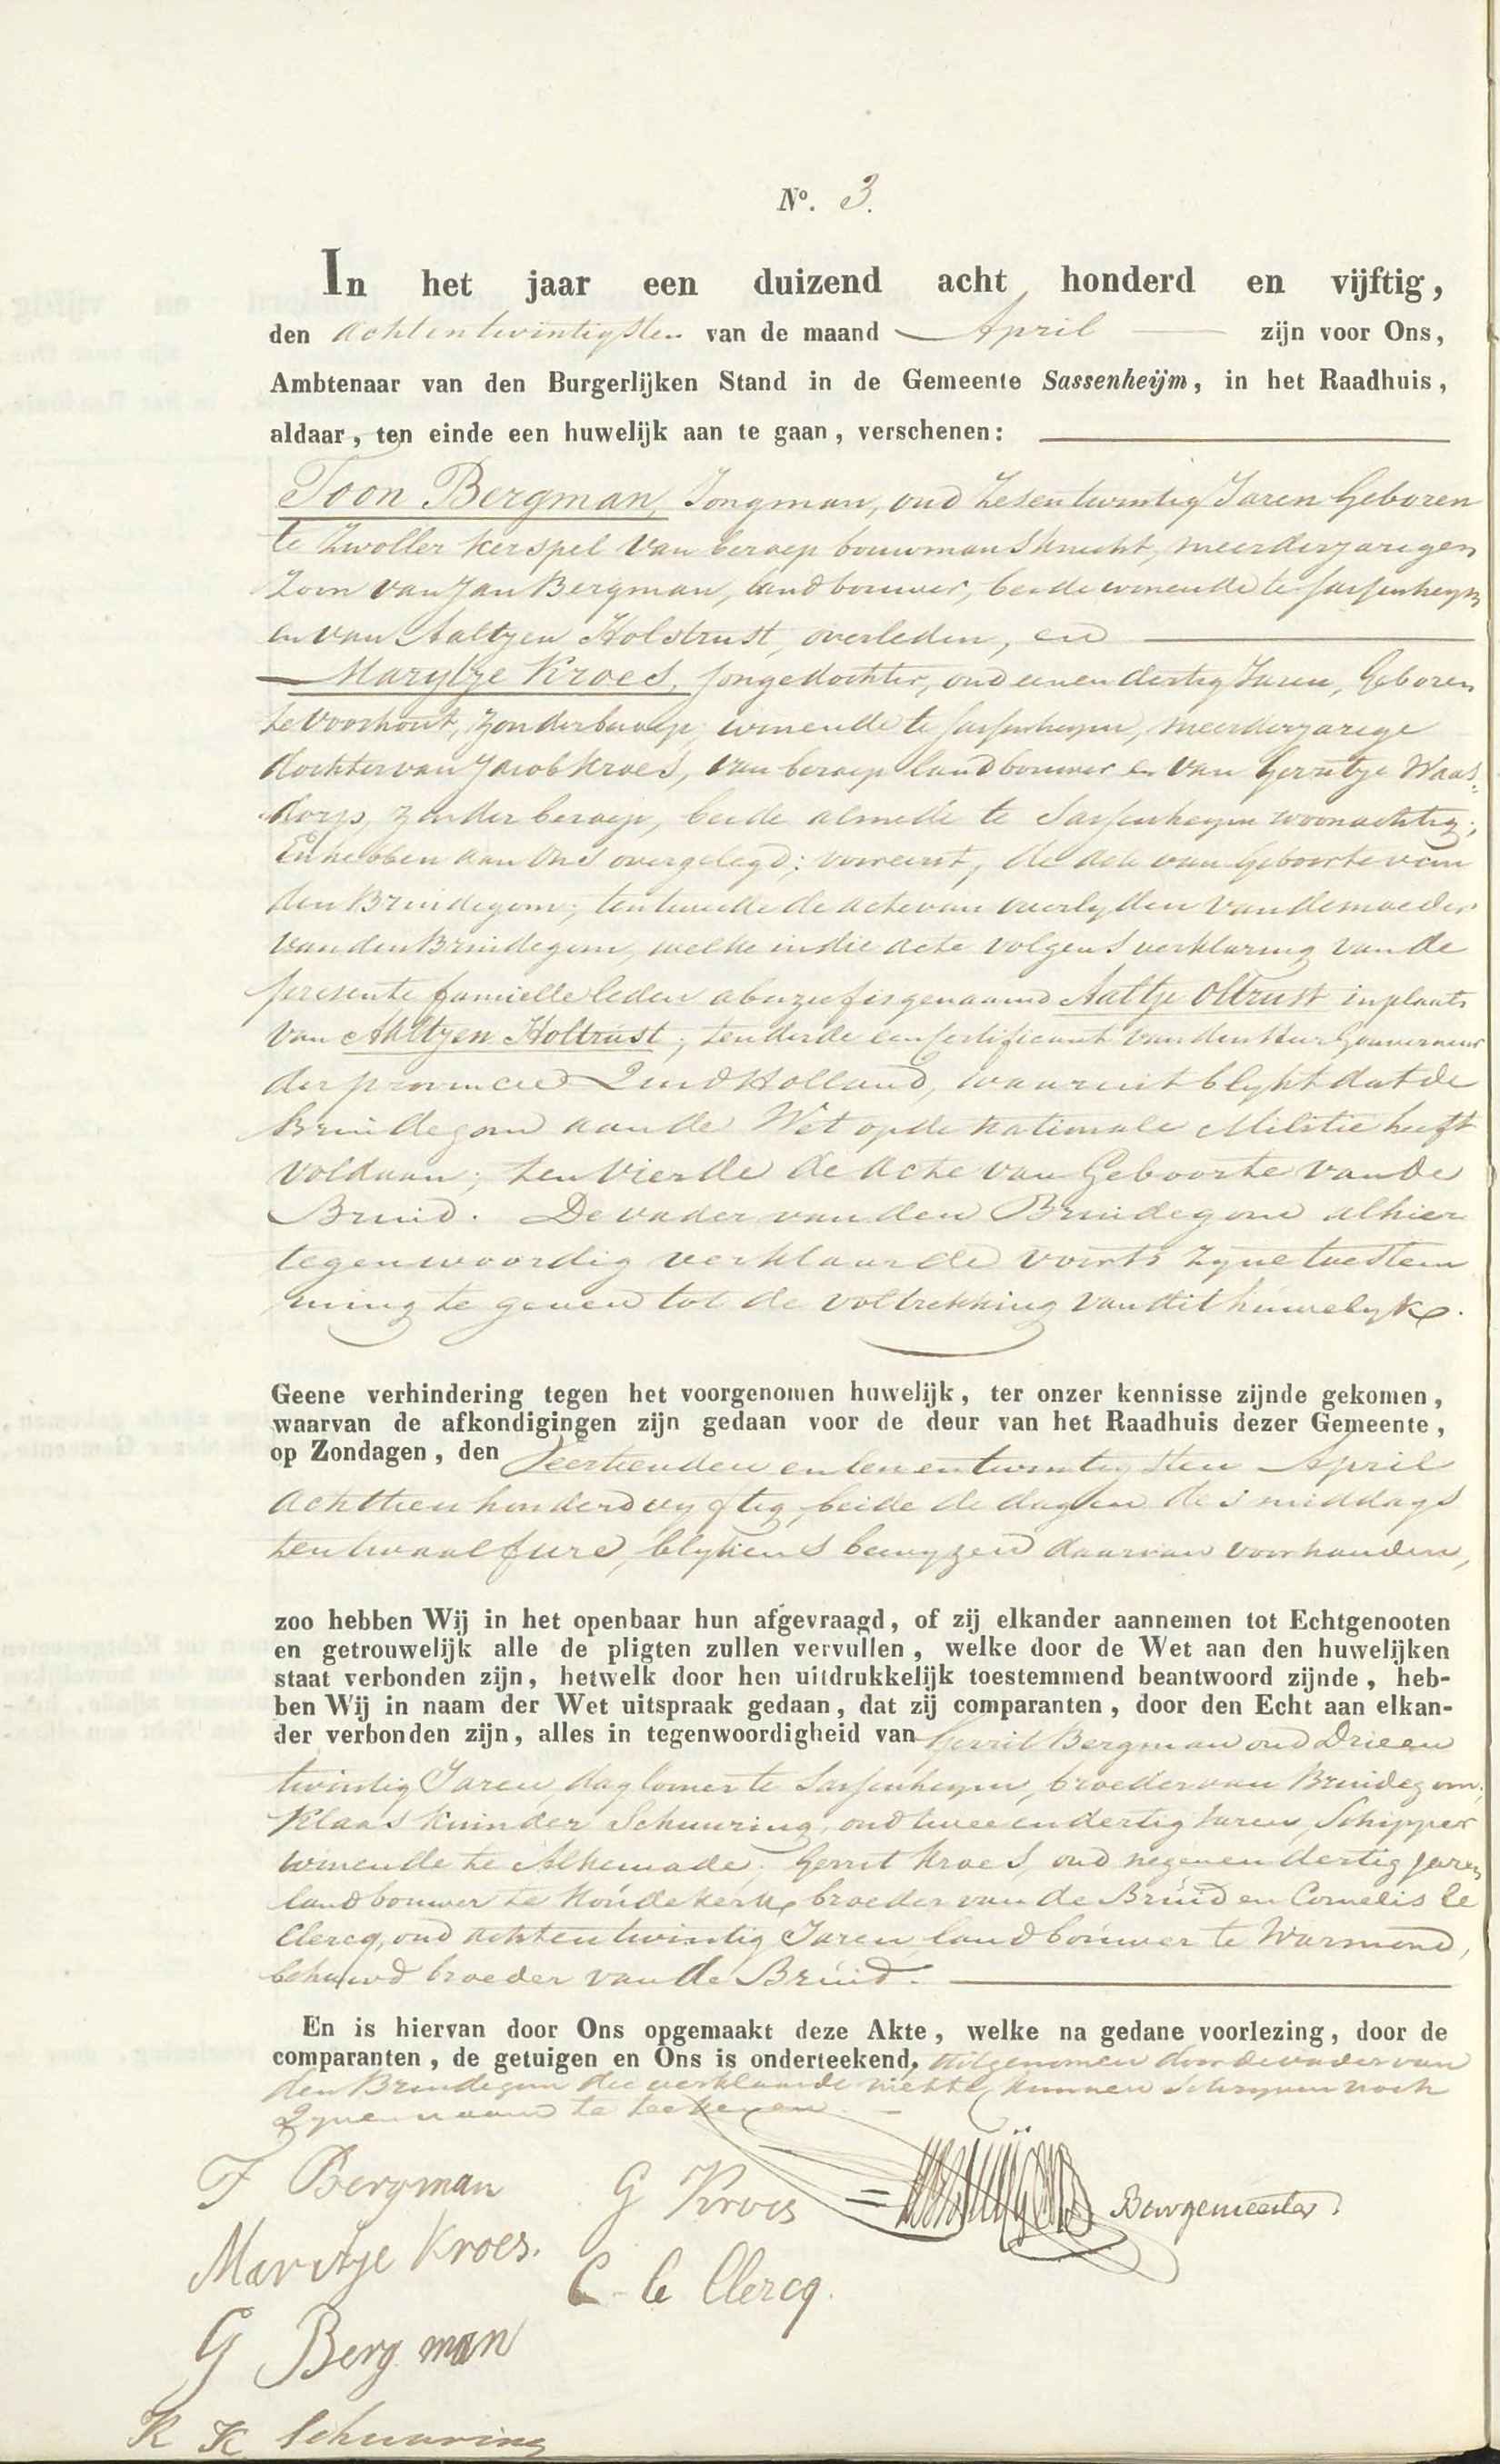 No. 3.
In het jaar een duizend acht honderd en vijftig,
den achtentwintigsten van de maand April zijn voor Ons,
Ambtenaar van den Burgerlijken Stand in de Gemeente Sassenheijm, in het Raadhuis,
aldaar, ten einde een huwelijk aan te gaan, verschenen:
Toon Bergman, Jongman, oud Zesentwintig Jaren Geboren
te Zwoller kerspel van beroep bouwmansknecht, meerderjarigen
Zoon van Jan Bergman, landbouwer, beide wonende te Sassenheym
en van Aaltzen Holstrust, overleden, en
Marytje Kroes, Jongedochter, oud eenendertig Jaren, Geboren
te Voorhout, zonder beroep, wonende te Sassenheym, meerderjarige
dochter van Jacob Kroes, van beroep landbouwer en van Gerritje Waas=
dorp, zonder beroep, beide almede te Sassenheym woonachtig;
En hebben aan Ons overgelegd; vooreerst, de acte van Geboorte van
den Bruidegom; ten tweede de acte van overlyden van de moeder
van den Bruidegom, welke in die acte volgens verklaring van de
presente familieleden abuzief is genaamd Aaltje Oltrust in plaats
van Aaltzen Holtrust; ten derde een certificaat van den Heer Gouverneur
der provincie Zuid Holland, waaruit blykt dat de
Bruidegom aan de Wet op de nationale Militie heeft
voldaan; ten vierde de acte van Geboorte van de
Bruid. De vader van den Bruidegom alhier
tegenwoordig verklaarde voorts zyne toestem
ming te geven tot de voltrekking van dit huwelyk.
Geene verhindering tegen het voorgenomen huwelijk, ter onzer kennisse zijnde gekomen,
waarvan de afkondigingen zijn gedaan voor de deur van het Raadhuis dezer Gemeente,
op Zondagen, den Veertienden en eenentwintigsten April
achttien honderd vyftig, beide de dagen des middags
ten twaalf ure, blykens bewyzen daarvan voorhanden,
zoo hebben Wij in het openbaar hun afgevraagd, of zij elkander aannemen tot Echtgenooten
en getrouwelijk alle de pligten zullen vervullen, welke door de Wet aan den huwelijken
staat verbonden zijn, hetwelk door hen uitdrukkelijk toestemmend beantwoord zijnde, heb-
ben Wij in naam der Wet uitspraak gedaan, dat zij comparanten, door den Echt aan elkan-
der verbonden zijn, alles in tegenwoordigheid van Gerrit Bergman oud Drieen
twintig Jaren, daglooner te Sassenheym, broeder van Bruidegom;
Klaas Kuinder Schuuring, oud tweeendertig Jaren, Schipper
wonende te Alkemade; Gerrit Kroes, oud negenendertig jaren
landbouwer te Koudekerk, broeder van de Bruid en Cornelis le
Clercq, oud achtentwintig Jaren landbouwer te Warmond,
behuwd broeder van de Bruid.
En is hiervan door Ons opgemaakt deze Akte, welke na gedane voorlezing, door de
comparanten, de getuigen en Ons is onderteekend, uitgenomen door de vader van
den Bruidegom die verklaarde niet te kunnen schryven noch
Zynen naam te teekenen.
T Bergman
G Kroes
Burgemeester.
Maritje Kroes.
C. le Clercq.
G Bergman
K K Schuuring